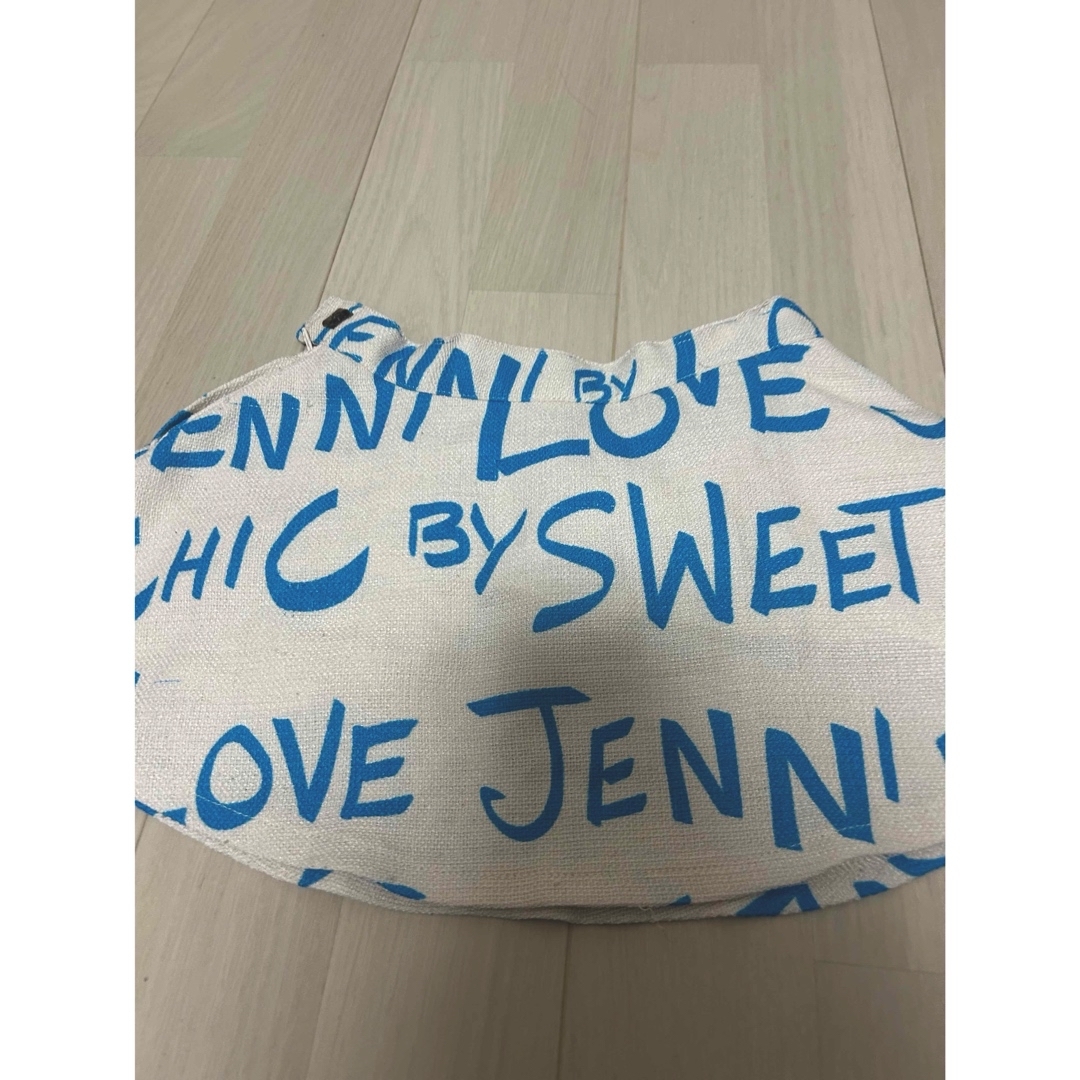 JENNI BY
JENNI LOVE
CHIC BY SWEET
LOVE JENNI